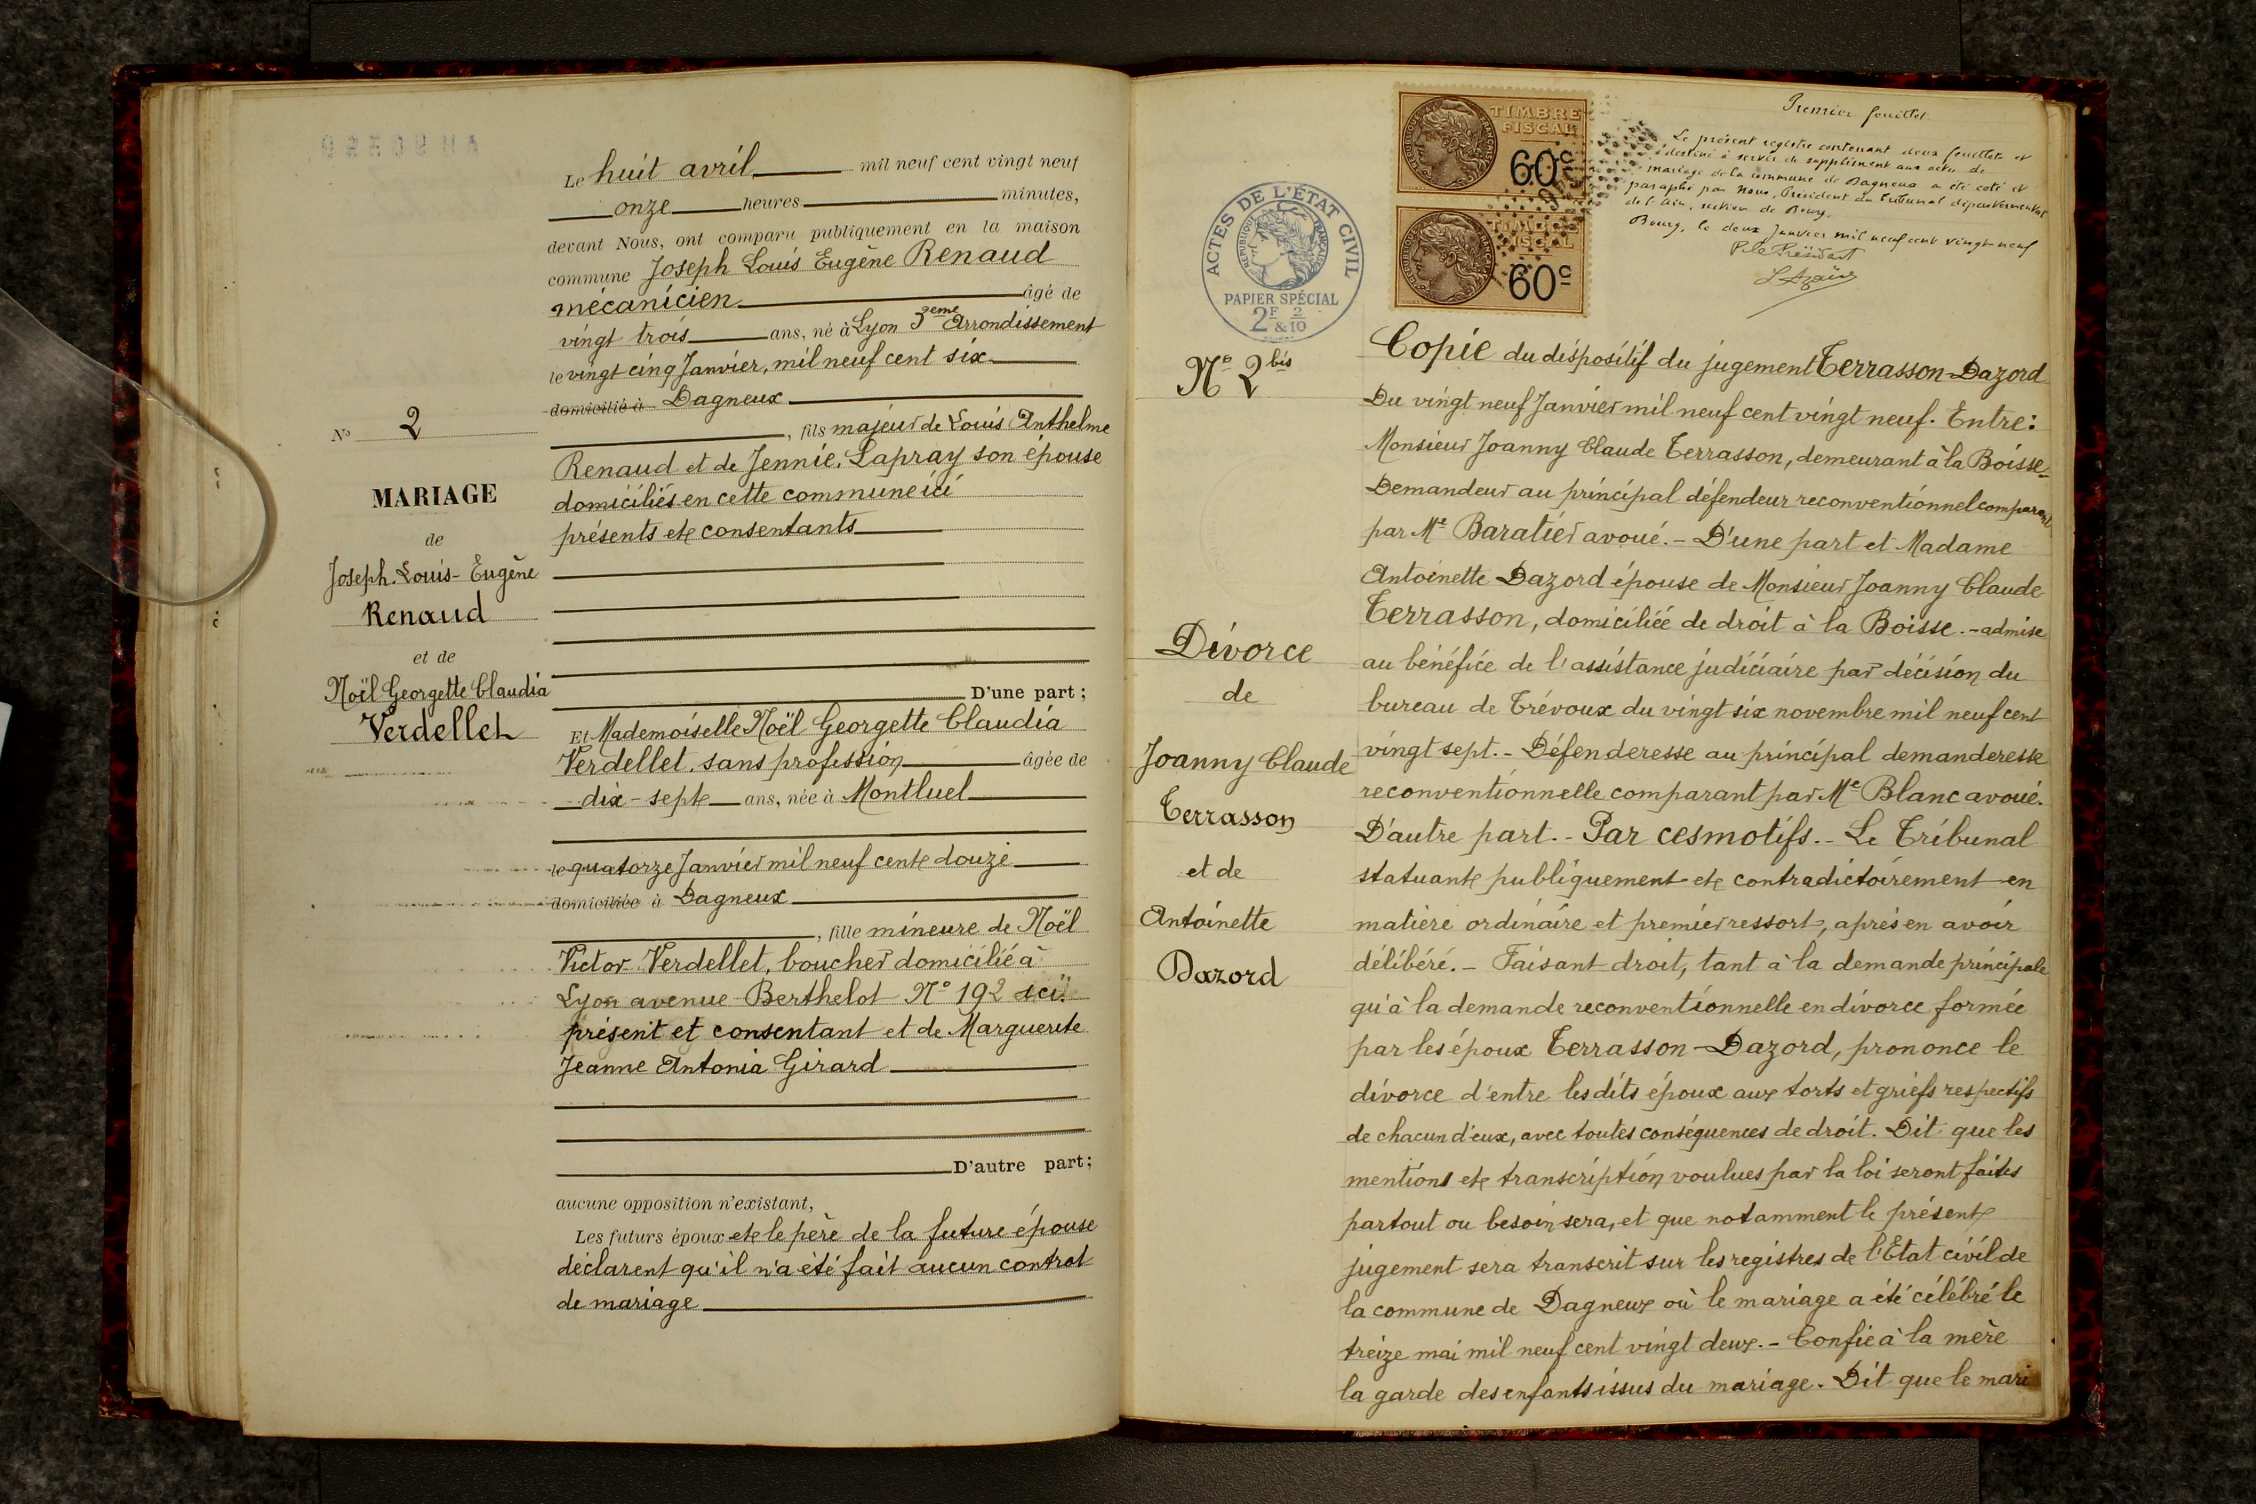 Le huit avril mil neuf cent vingt neuf
onze heures minutes,
devant Nous, ont comparu publiquement en la maison
commune Joseph Louis Eugène Renaud
mécanicien âgé de
vingt trois ans, né à Lyon 3eme Arrondissement
le vingt cinq Janvier, mil neuf cent six
domicilié à Dagneux
, fils majeur de Louis Anthelme
Renaud et de Jennie Lapray son épouse
domiciliés en cette commune ici
présents et consentants
D'une part;
Et Mademoiselle Noël Georgette Claudia
Verdellet, sans profession âgée de
dix-sept ans, née à Montluel
le quatorze Janvier mil neuf cent douze
domiciliée à Dagneux
, fille mineure de Noël
Victor Verdellet, boucher domicilié à
Lyon avenue Berthelot No 192 ici
présent et consentant et de Marguerite
Jeanne Antonia Girard
D'autre part;
aucune opposition n'existant,
Les futurs époux et le père de la future épouse
déclarent qu'il n'a été fait aucun contrat
de mariage
No 2
MARIAGE
de
Joseph-Louis-Eugène
Renaud
et de
Noël Georgette Claudia
Verdellet
TIMBRE
FISCAL
60c
60c
ACTES DE L'ÉTAT CIVIL
RÉPUBLIQUE FRANÇAISE
PAPIER SPÉCIAL
2F & 2/10
Premier feuillet
Le présent registre contenant deux feuillets et
destiné à servir de supplément aux actes de
mariage de la commune de Dagneux a été coté et
paraphé par Nous, Président du Tribunal départemental
de l'Ain, section de Bourg.
Bourg, le deux Janvier mil neuf cent vingt-neuf
P. le Président
No 2 bis
Divorce
de
Joanny Claude
Terrasson
et de
Antoinette
Dazord
Copie du dispositif du jugement Terrasson-Dazord
Du vingt neuf Janvier mil neuf cent vingt neuf. Entre:
Monsieur Joanny Claude Terrasson, demeurant à la Boisse-
Demandeur au principal défendeur reconventionnel comparant
par Me Baratier avoué.- D'une part et Madame
Antoinette Dazord épouse de Monsieur Joanny Claude
Terrasson, domiciliée de droit à la Boisse.-admise
au bénéfice de l'assistance judiciaire par décision du
bureau de Trévoux du vingt six novembre mil neuf cent
vingt sept.- Défenderesse au principal demanderesse
reconventionnelle comparant par Me Blanc avoué.
D'autre part.- Par ces motifs.- Le Tribunal
statuant publiquement et contradictoirement en
matière ordinaire et premier ressort, après en avoir
délibéré.- Faisant droit, tant à la demande principale
qu'à la demande reconventionnelle en divorce formée
par les époux Terrasson-Dazord, prononce le
divorce d'entre lesdits époux aux torts et griefs respectifs
de chacun d'eux, avec toutes conséquences de droit. Dit que les
mentions et transcription voulues par la loi seront faites
partout ou besoin sera, et que notamment le présent
jugement sera transcrit sur les registres de l'Etat civil de
la commune de Dagneux où le mariage a été célébré le
treize mai mil neuf cent vingt deux.- Confie à la mère
la garde des enfants issus du mariage. Dit que le mari